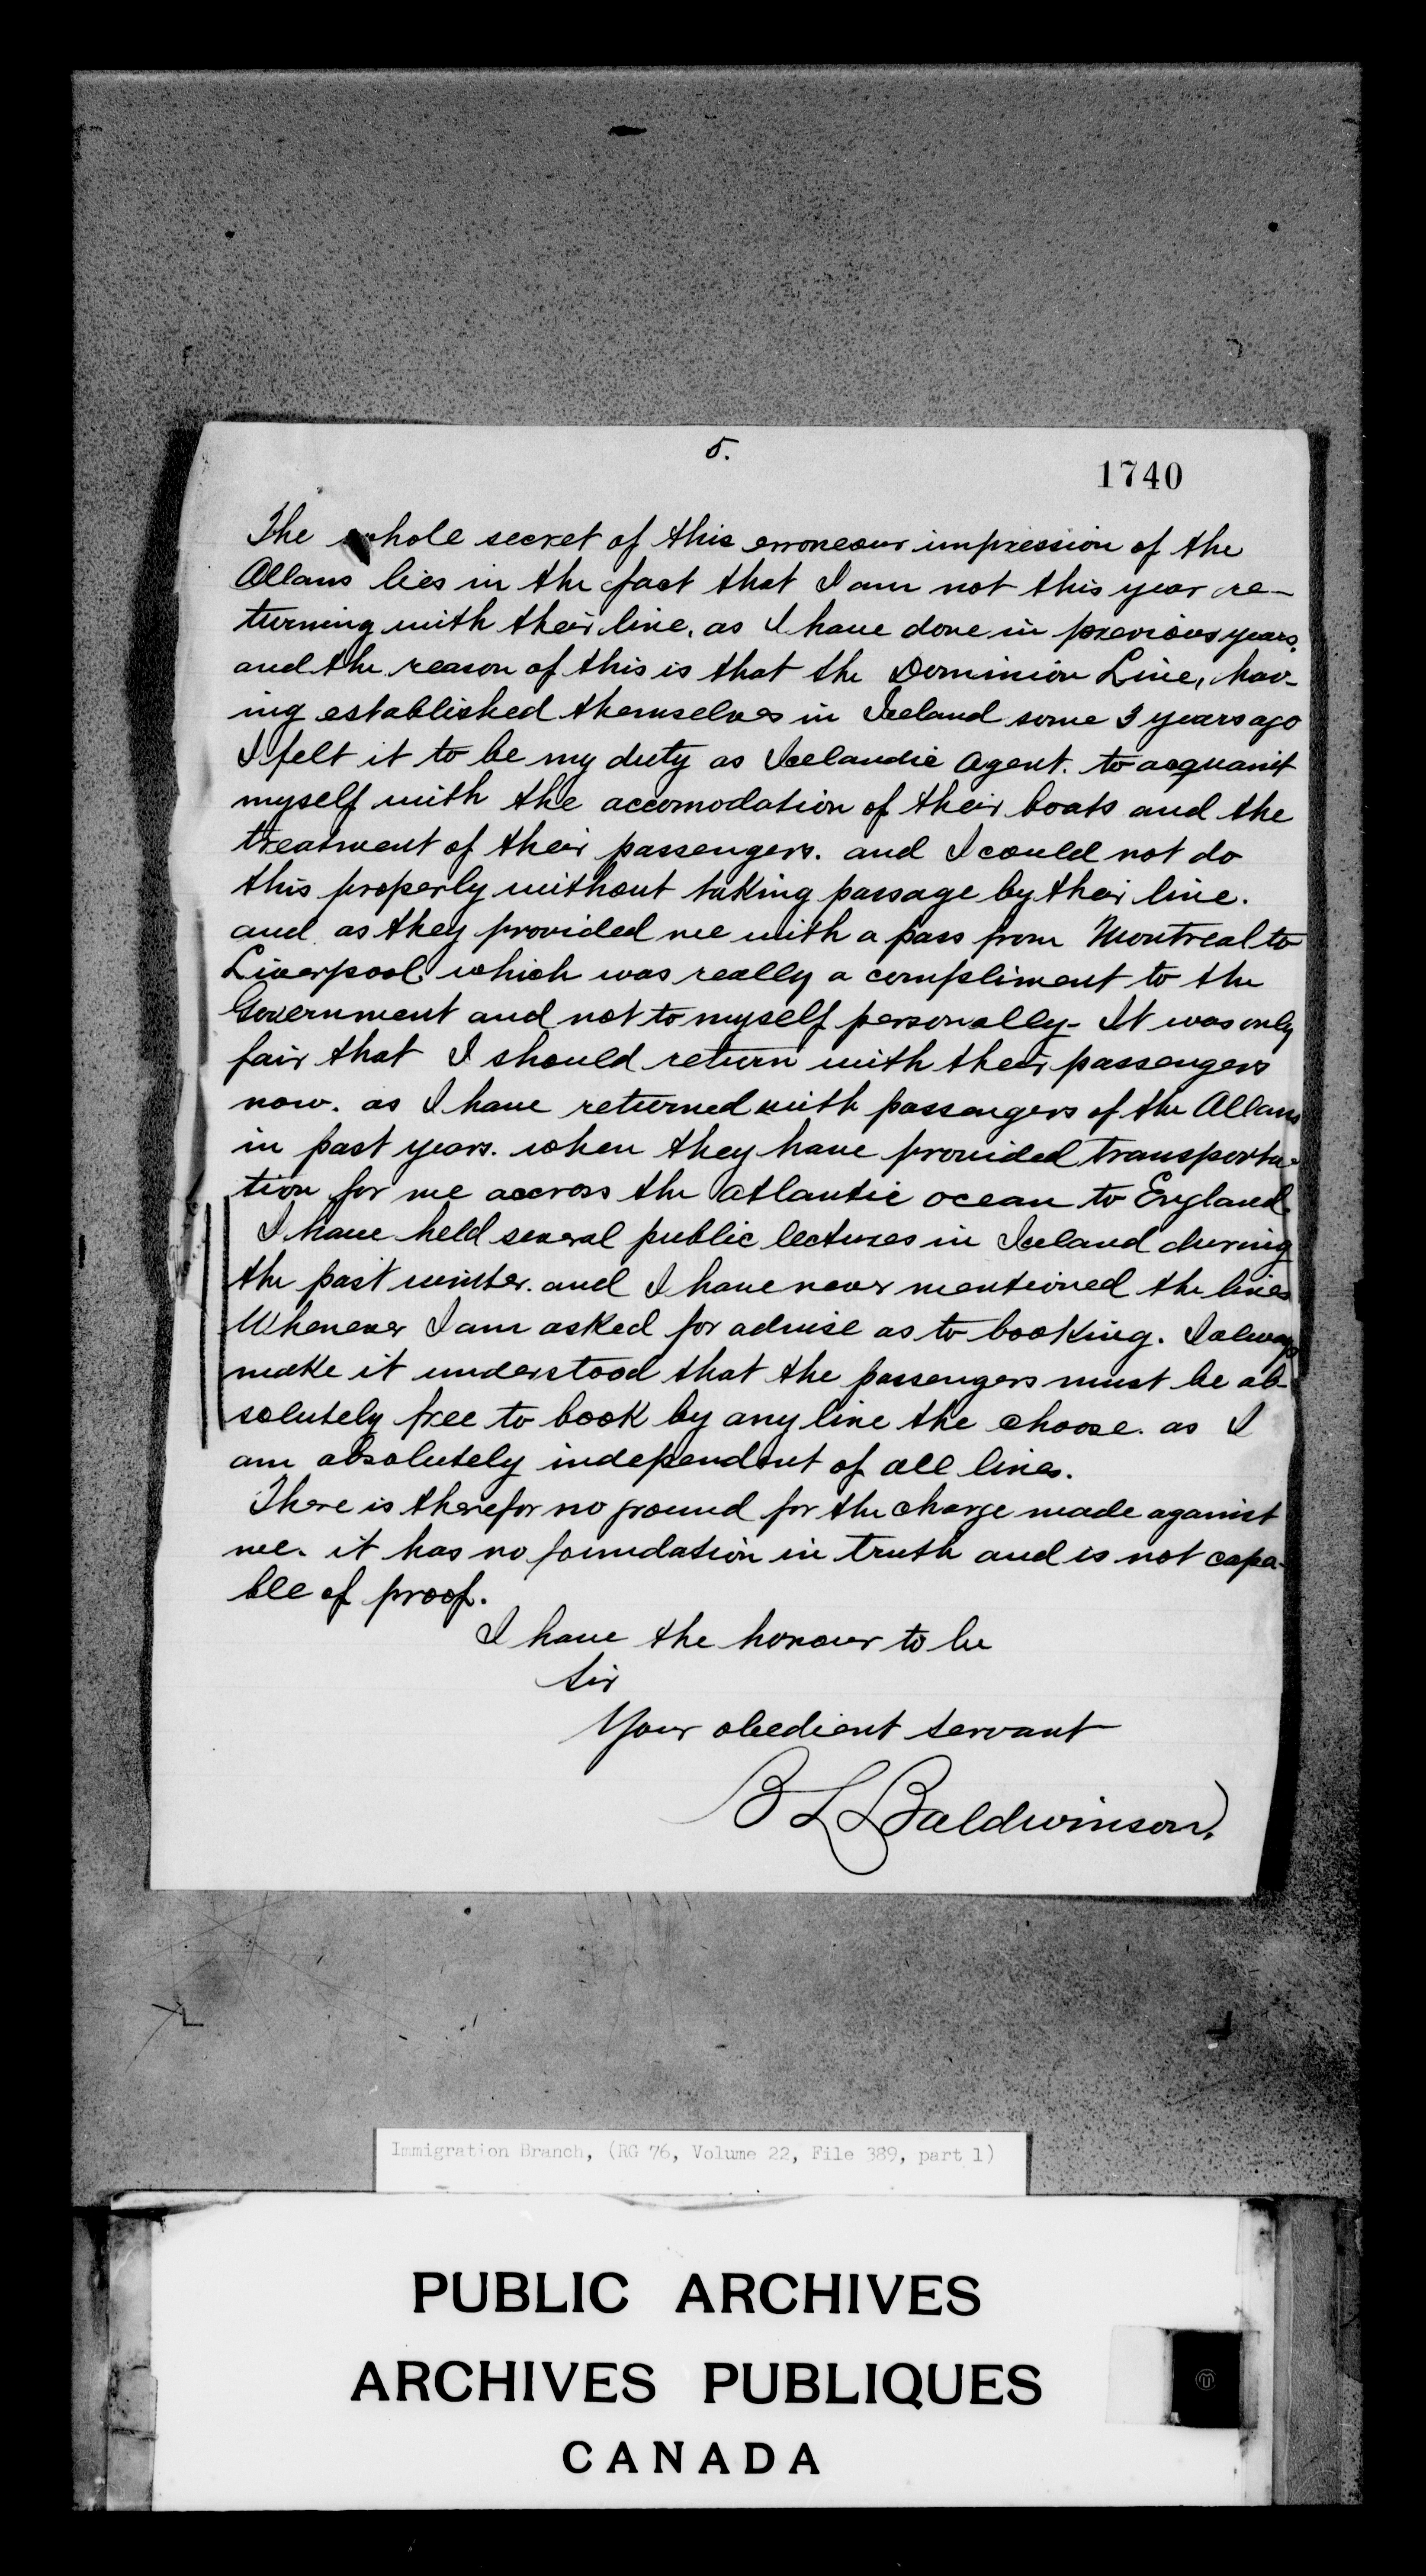 5.
1740
The whole secret of this erroneour impression of the
Allans lies in the fact that I am not this year re-
turning with their line. as I have done in previous years.
and the reason of this is that the Dominion Line, hav-
ing established themselves in Iceland some 3 years ago
I felt it to be my duty as Icelandic Agent. to acquanit
myself with the accomodation of their boats and the
treatment of their passengers. and I could not do
this properly without taking passage by their line.
and as they provided me with a pass from Montreal to
Liverpool. which was really a compliment to the
Government and not to myself personally - It was only
fair that I should return with their passengers
now. as I have returned with passengers of the Allans
in past years. when they have provided transporta-
tion for me accross the Atlantic ocean to England.
I have held several public lectures in Iceland during
the past winter. and I have never mentioned the lines
Whenever I am asked for advise as to booking. I always
make it understood that the passengers must be ab-
solutely free to book by any line the choose. as I
am absolutely independent of all lines.
There is therefor no ground for the charge made against
me. it has no foundation in truth and is not capa-
ble of proof.
I have the honour to be
Sir
Your obedient servant
B L Baldwinson.
Immigration Branch, (RG 76, Volume 22, File 389, part 1)
PUBLIC ARCHIVES
ARCHIVES PUBLIQUES
CANADA